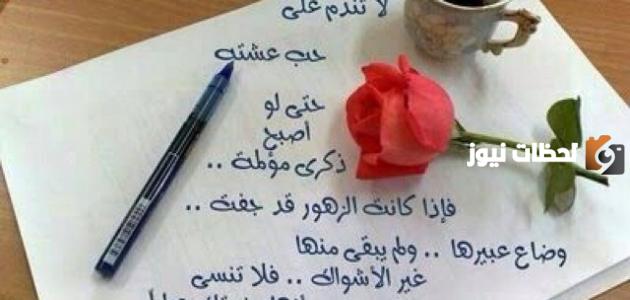 لا تندم على
حب عشته
حتى لو
اصبح
ذكرى مؤلمة ..
فإذا كانت الزهور قد جفت ..
وضاع عبيرها .. ولم يبقى منها
غير الأشواك .. فلا تنسى
لحظات نيوز